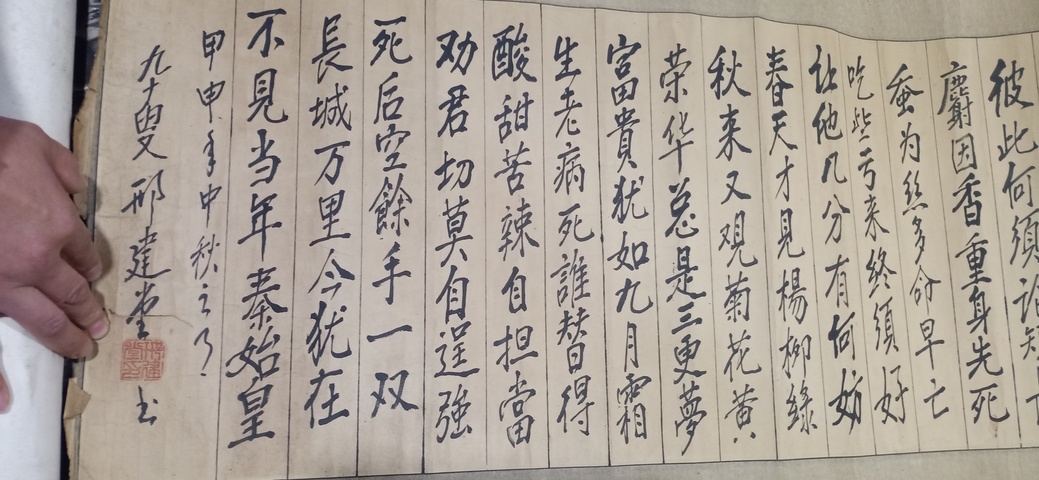 彼此何須論短
麝因香重身先死
蚕为絲多命早亡
吃些亏来终須好
让他几分有何妨
春天才見楊柳綠
秋来又观菊花黄
荣华总是三更夢
富貴犹如九月霜
生老病死誰替得
酸甜苦辣自担當
劝君切莫自逞強
死后空餘手一双
長城万里今犹在
不見当年秦始皇
甲申年中秋之
九十叟邢建堂书